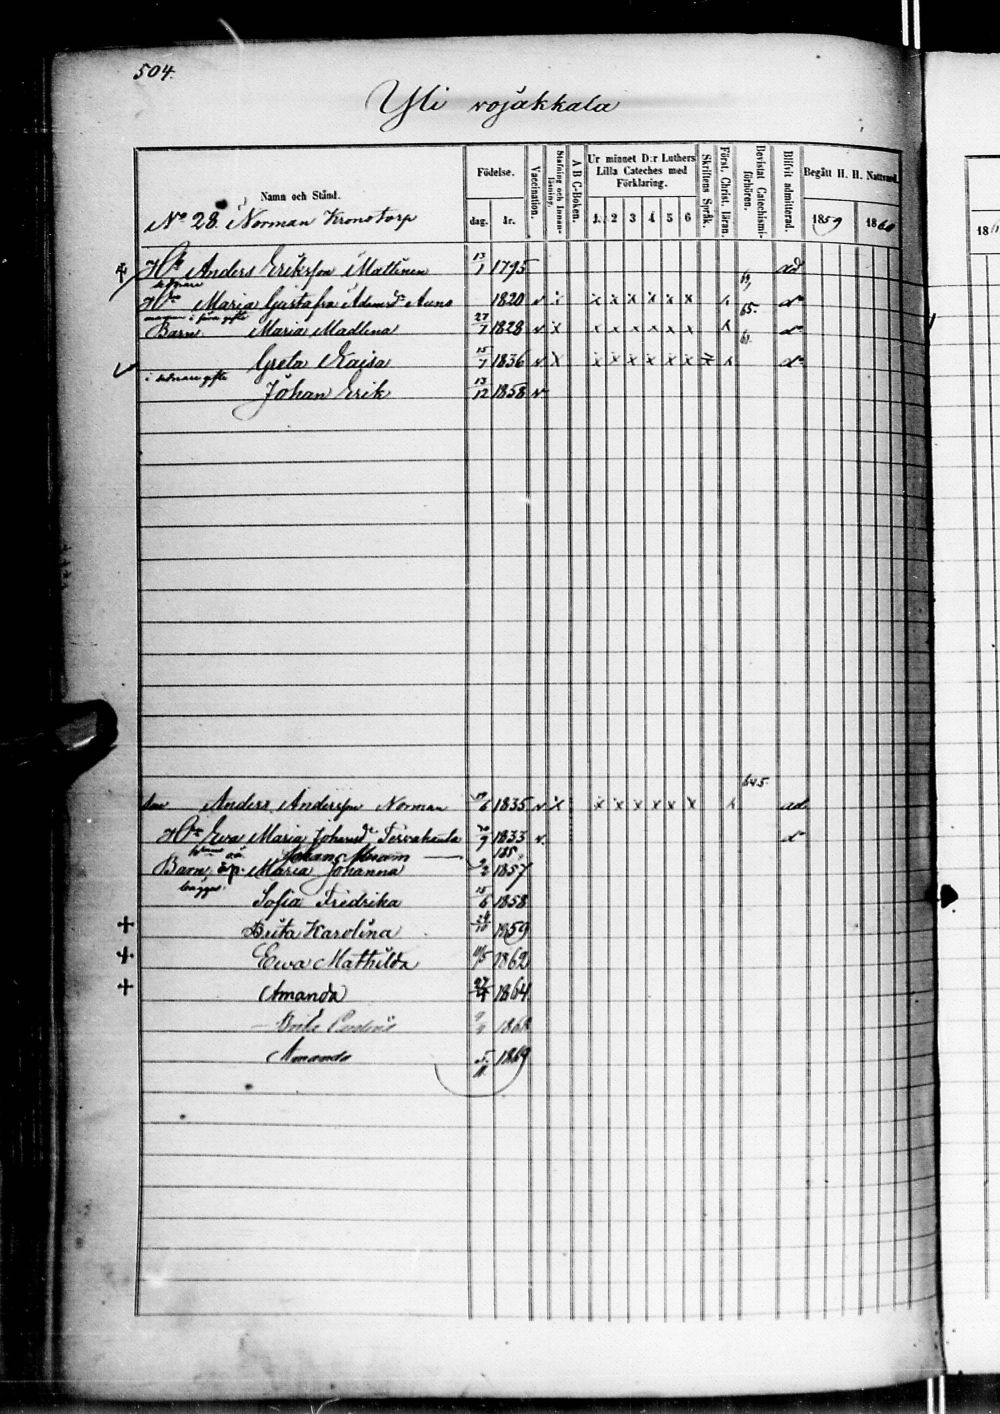 504.
Yli vojakkala
Namn och Stånd.
Födelse.
dag.
år.
Vaccination.
Stafning och Innanläsning.
A B C-Boken.
Ur minnet D:r Luthers Lilla Cateches med Förklaring.
1. 2 3 4 5 6
Skriftens Språk.
Först. Christ. läran.
Bevistat Catechismiförhören.
Blifvit admitterad.
Begått H. H. Nattvard.
1859 1860
No 28. Norman Kronotorp
Anders Eriksson Mattinen 13/1 1795 ad
Maria Gustafva Adamsdr Auno 1820 v x x x x x x x
Barn Maria Madlena 27/7 1828 v x x x x x x x
65.
Greta Kaisa 15/7 1836 v x x x x x x x
Johan Erik 13/12 1858 v
645
Anders Andersson Norman 1835 v x x x x x x x ad
Eva Maria Johansdr Tervahauta 1833 v
Johan
Barn Maria Johanna 2/2 1857
Sofia Fredrika 15/6 1858
Brita Karolina 1859
Ewa Mathilda 1862
Amanda 27/4 1864
1868
Amanda 5/11 1869